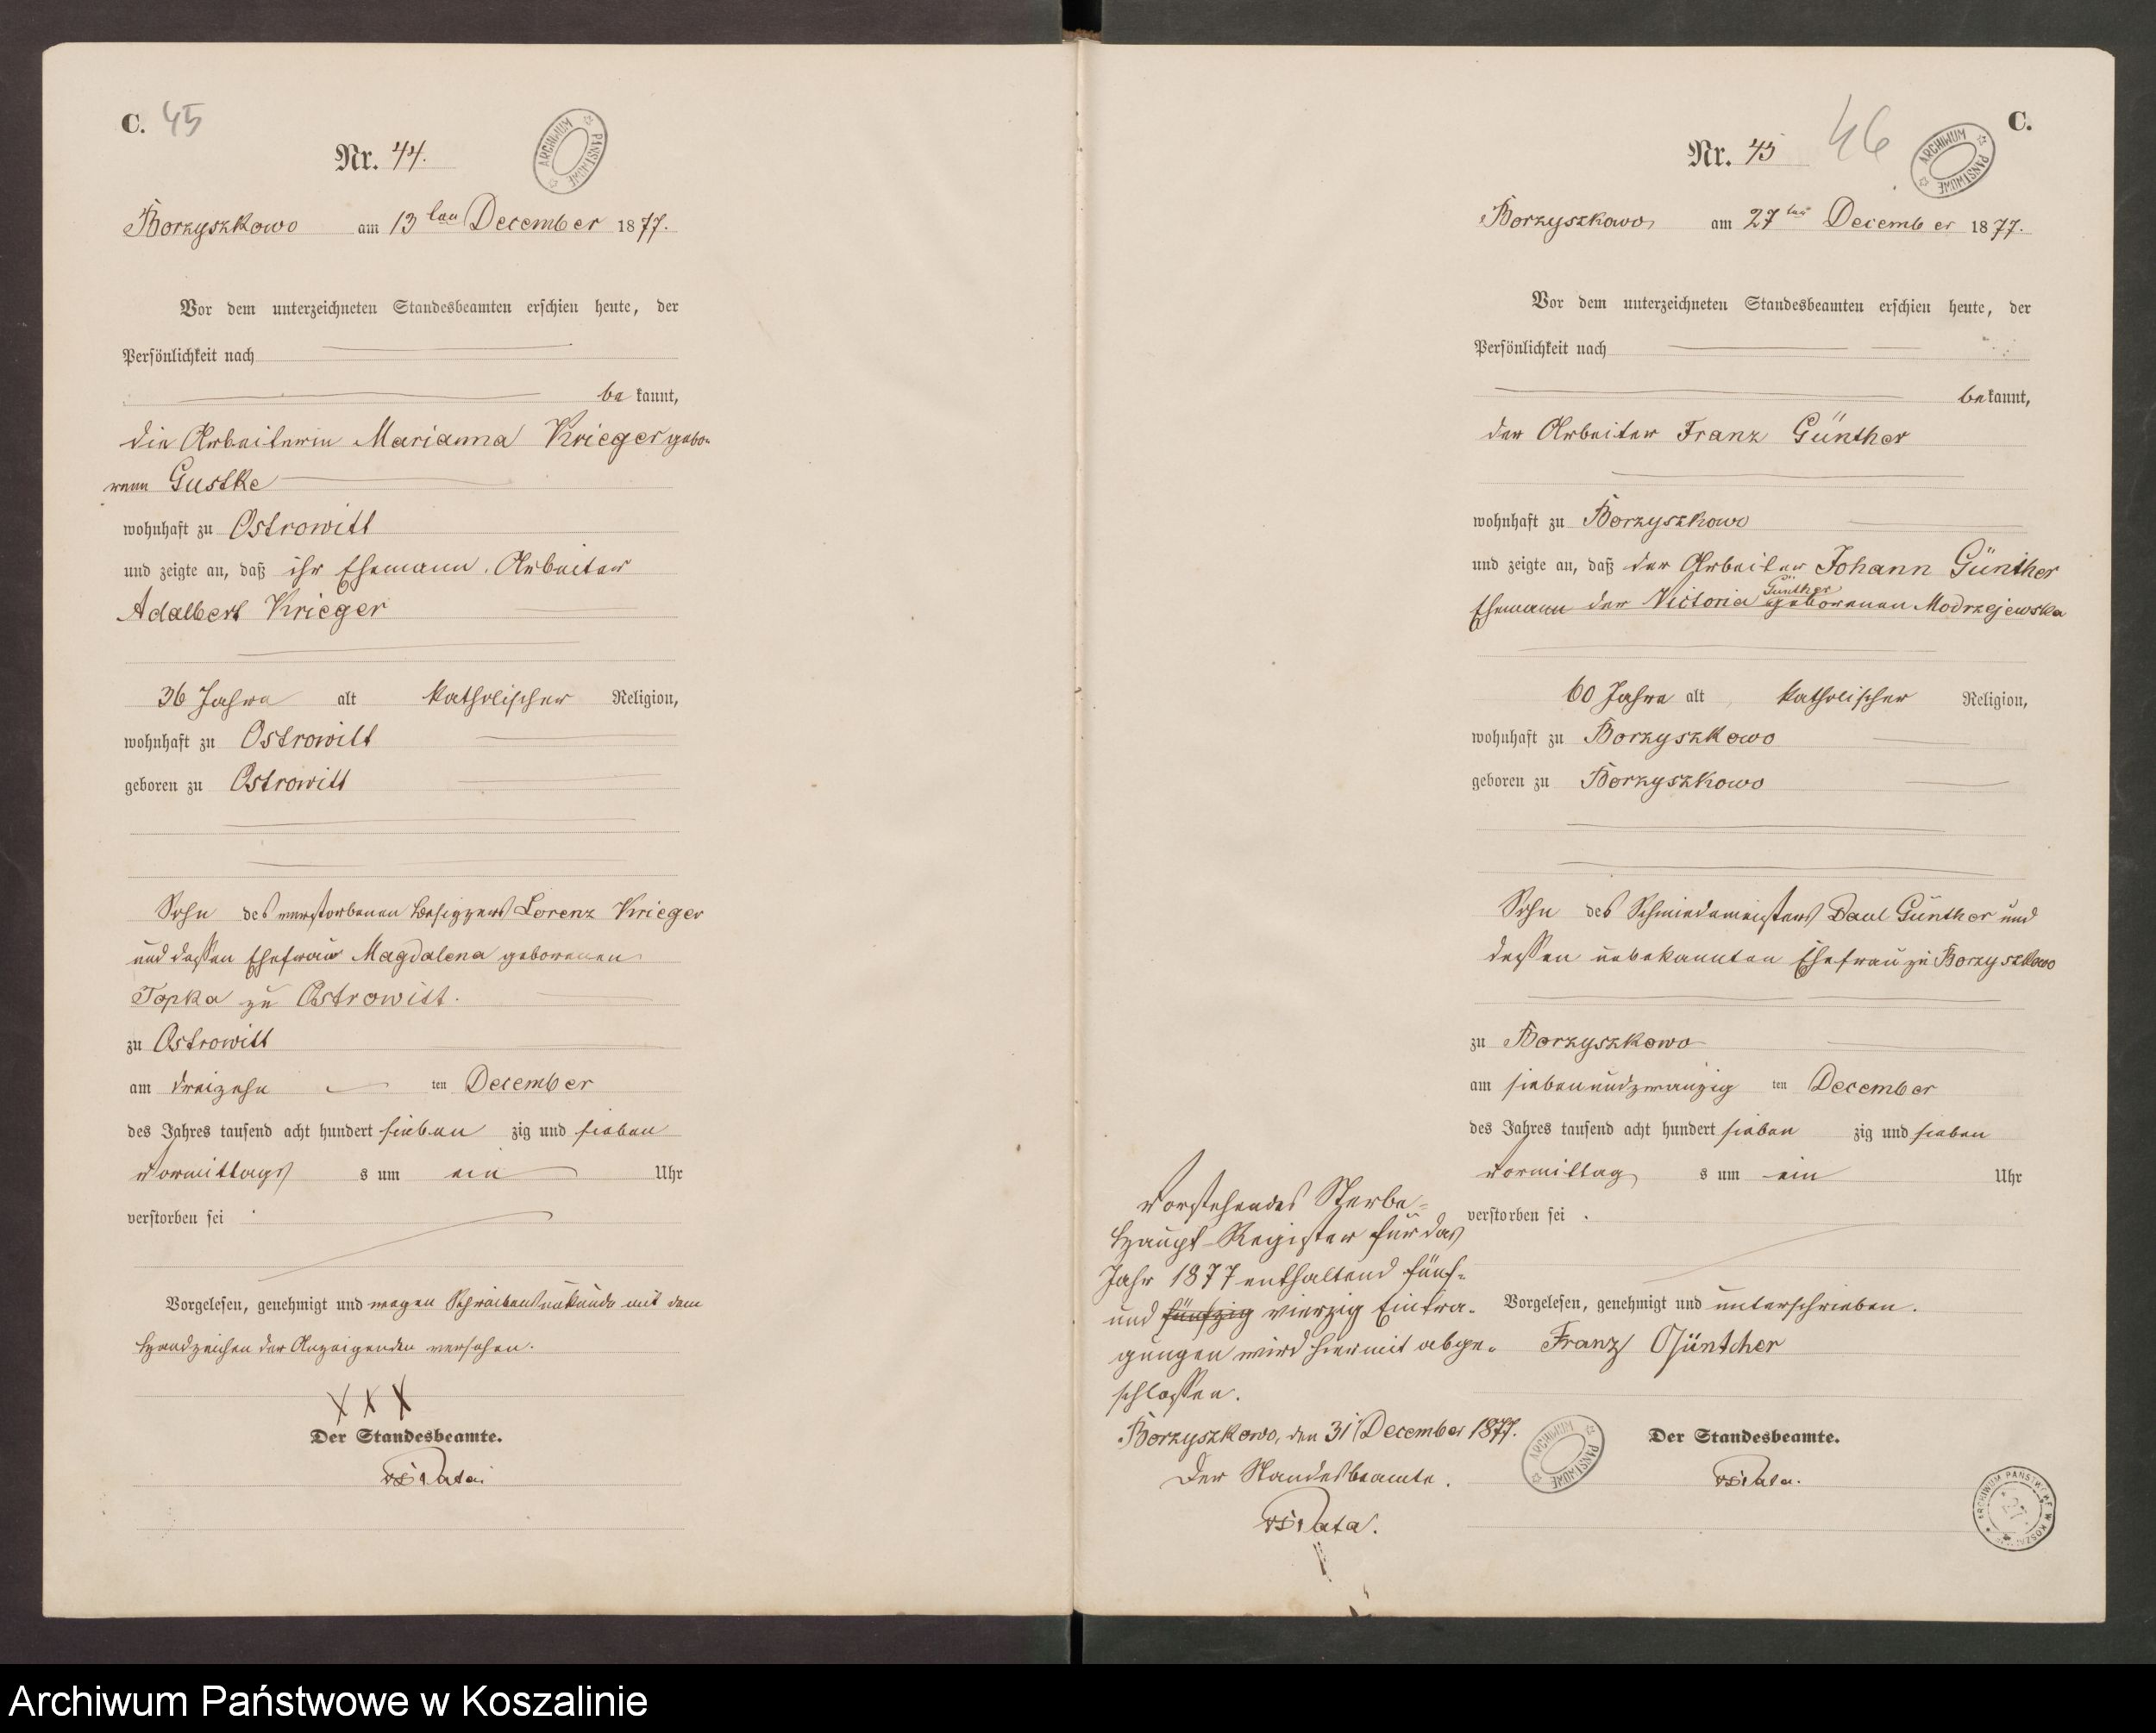 C. 45
Nr. 44.
ARCHIWUM PAŃSTWOWE
Borzyszkowo am 13ten December 1877.
Vor dem unterzeichneten Standesbeamten erschien heute, der
Persönlichkeit nach
be kannt,
die Arbeiterin Marianna Krieger gebo-
renen Gustke
wohnhaft zu Ostrowitt
und zeigte an, daß ihr Ehemann, Arbeiter
Adalbert Krieger
36 Jahre alt katholischer Religion,
wohnhaft zu Ostrowitt
geboren zu Ostrowitt
Sohn des verstorbenen Besitzers Lorenz Krieger
und dessen Ehefrau Magdalena geborenen
Topka zu Ostrowitt.
zu Ostrowitt
am dreizehn ten December
des Jahres tausend acht hundert sieben zig und sieben
Vormittags s um ein Uhr
verstorben sei
Vorgelesen, genehmigt und wegen Schreibensunkunde mit dem
Handzeichen der Anzeigenden versehen.
X X X
Der Standesbeamte.
C.
46
Nr. 45
ARCHIWUM PAŃSTWOWE
Borzyszkowo, am 27ten December 1877.
Vor dem unterzeichneten Standesbeamten erschien heute, der
Persönlichkeit nach
be kannt,
der Arbeiter Franz Günther
wohnhaft zu Borzyszkowo
und zeigte an, daß der Arbeiter Johann Günther
Günther
Ehemann der Victoria geborenen Modrzejewska
60 Jahre alt katholischer Religion,
wohnhaft zu Borzyszkowo
geboren zu Borzyszkowo
Sohn des Schmiedemeisters Paul Günther und
dessen unbekannten Ehefrau zu Borzyszkowo
zu Borzyszkowo
am siebenundzwanzig ten December
des Jahres tausend acht hundert sieben zig und sieben
Vormittag s um ein Uhr
verstorben sei
Vorgelesen, genehmigt und unterschrieben.
Franz Güntcher
Der Standesbeamte.
Vorstehendes Sterbe-
Haupt-Register für das
Jahr 1877 enthaltend fünf-
und fünfzig vierzig Eintra-
gungen wird hiermit abge-
schlossen.
Borzyszkowo, den 31 December 1877.
Der Standesbeamte.
ARCHIWUM PAŃSTWOWE
Archiwum Państwowe w Koszalinie